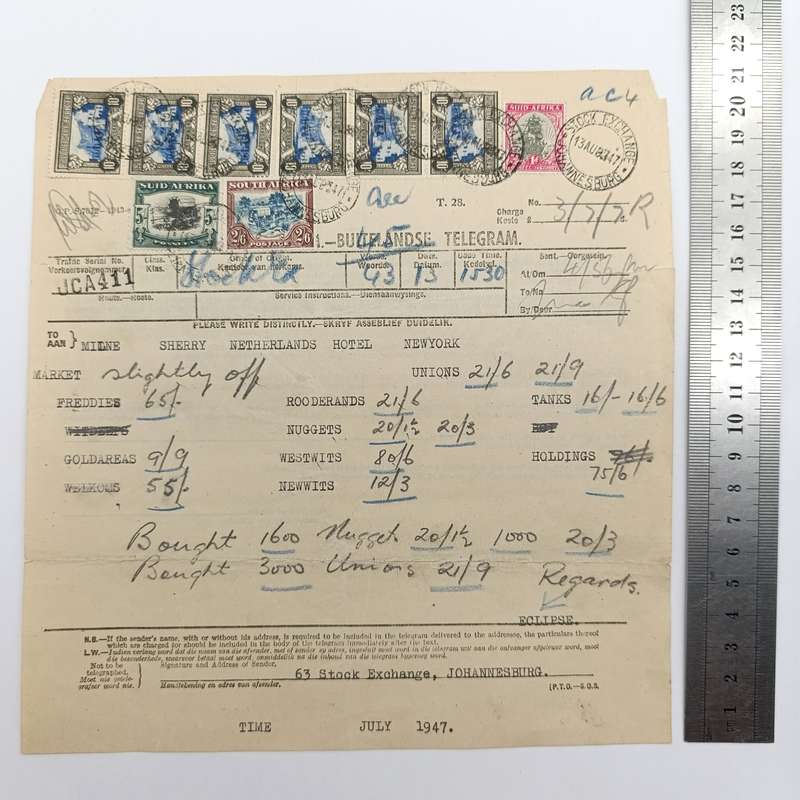 ac4
SUID-AFRIKA
STOCK EXCHANGE
13 AUG 47
JOHANNESBURG
SUID AFRIKA
5/-
POSSEEL
SOUTH AFRICA
2/6
POSTAGE
T. 28.
Charge
Koste
No. 3/7/7 R
1.—BUITELANDSE TELEGRAM.
Traffic Serial No.
Verkeersvolgnommer.
Class.
Klas.
Office of Origin.
Kantoor van Herkoms.
Words.
Woorde.
Date.
Datum.
Code Time.
Kodetyd.
Sent.—Oorgesein.
JCA411
43
13
1530
At/Om
To/Na
By/Deur
Route.—Roete.
Service Instructions.—Diensaanwysings.
PLEASE WRITE DISTINCTLY.—SKRYF ASSEBLIEF DUIDELIK.
TO
AAN
MILNE SHERRY NETHERLANDS HOTEL NEWYORK
MARKET slightly off UNIONS 21/6 21/9
FREDDIES 65/- ROODERANDS 21/6 TANKS 16/- 16/6
WITDEEPS NUGGETS 20/1½ 20/3 HOT
GOLDAREAS 9/9 WESTWITS 80/6 HOLDINGS
75/6
WELKOMS 55/- NEWWITS 12/3
Bought 1600 Nuggets 20/1½ 1000 20/3
Bought 3000 Unions 21/9 Regards.
ECLIPSE.
N.B.—If the sender's name, with or without his address, is required to be included in the telegram delivered to the addressee, the particulars thereof
which are charged for should be included in the body of the telegram immediately after the text.
L.W.—Indien verlang word dat die naam van die afsender, met of sonder sy adres, ingesluit moet word in die telegram wat aan die ontvanger afgelewer word, moet
die besonderhede, waarvoor betaal moet word, onmiddellik na die inhoud van die telegram bygevoeg word.
Not to be
telegraphed.
Moet nie getele-
grafeer word nie.
Signature and Address of Sender.
63 Stock Exchange, JOHANNESBURG.
Handtekening en adres van afsender.
(P.T.O.—S.O.S.
TIME JULY 1947.
1 2 3 4 5 6 7 8 9 10 11 12 13 14 15 16 17 18 19 20 21 22 23